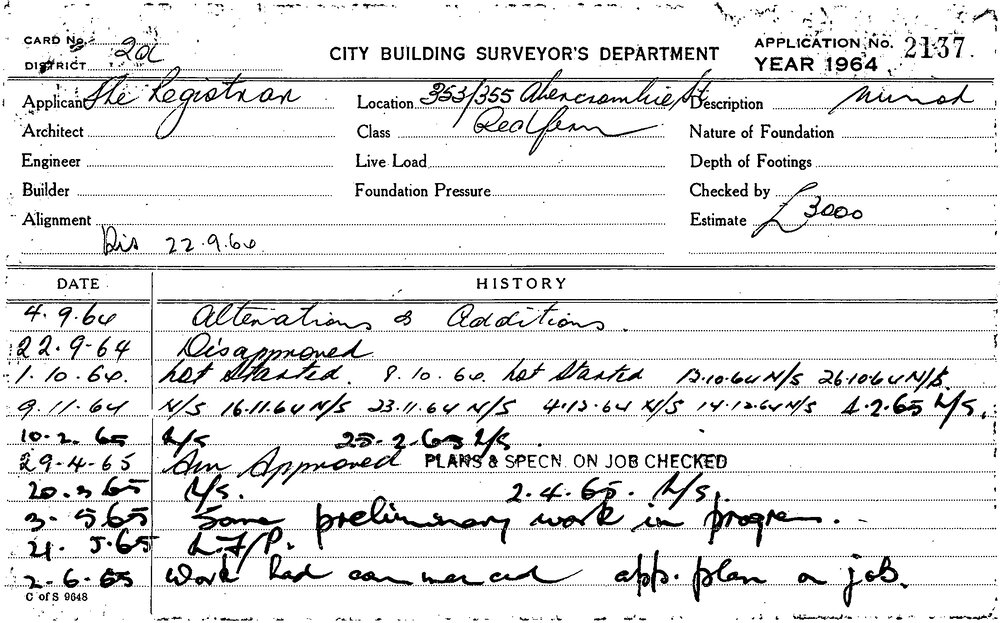 CARD No.
DISTRICT 2a
CITY BUILDING SURVEYOR'S DEPARTMENT
APPLICATION No. 2137
YEAR 1964
Applicant The Registrar
Location 353/355 Abercrombie St
Description
Architect
Class Redfern
Nature of Foundation
Engineer
Live Load
Depth of Footings
Builder
Foundation Pressure
Checked by
Alignment
Estimate £3000
Dis 22.9.64
DATE HISTORY
4.9.64 Alterations & Additions.
22.9-64 Disapproved
1.10.64. Not Started. 8.10.64. Not Started 12.10.64 N/S 26.10.64 N/S.
9.11.64 N/S 16.11.64 N/S 23.11.64 N/S 4.12.64 N/S 14.12.64 N/S 4.2.65 N/S.
10.2.65 N/S 25.2.65 N/S
29-4-65 Am Approved PLANS & SPECN. ON JOB CHECKED
20.3.65 N/S. 2.4.65. N/S.
3-5 65 Some preliminary work in progress.
21.5.65
2-6-65 Work had commenced app. plan on job.
C of S 9648